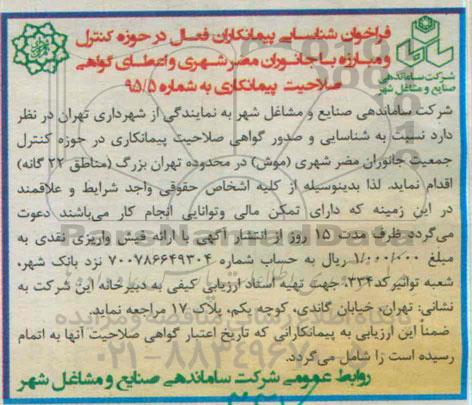 فراخوان شناسایی پیمانکاران فعال در حوزه کنترل
و مبارزه با جانوران مضر شهری و اعطای گواهی
صلاحیت پیمانکاری به شماره ۹۵/۵
شرکت ساماندهی
صنایع و مشاغل شهر
شرکت ساماندهی صنایع و مشاغل شهر به نمایندگی از شهرداری تهران در نظر
دارد نسبت به شناسایی و صدور گواهی صلاحیت پیمانکاری در حوزه کنترل
جمعیت جانوران مضر شهری (موش) در محدوده تهران بزرگ (مناطق ۲۲ گانه)
اقدام نماید. لذا بدینوسیله از کلیه اشخاص حقوقی واجد شرایط و علاقمند
در این زمینه که دارای تمکن مالی وتوانایی انجام کار می‌باشند دعوت
می‌گردد ظرف مدت ۱۵ روز از انتشار آگهی با ارائه فیش واریزی نقدی به
مبلغ ۱/۰۰۰/۰۰۰ ریال به حساب شماره ۷۰۰۷۸۶۶۴۹۳۰۴ نزد بانک شهر،
شعبه توانیرکد۳۳۴، جهت تهیه اسناد ارزیابی کیفی به دبیرخانه این شرکت به
نشانی: تهران، خیابان گاندی، کوچه یکم، پلاک ۱۷ مراجعه نماید.
ضمناً این ارزیابی به پیمانکارانی که تاریخ اعتبار گواهی صلاحیت آنها به اتمام
رسیده است را شامل می‌گردد.
روابط عمومی شرکت ساماندهی صنایع و مشاغل شهر
ParsNamadData
۰۲۱-۸۸۳۴۹۶۷۰